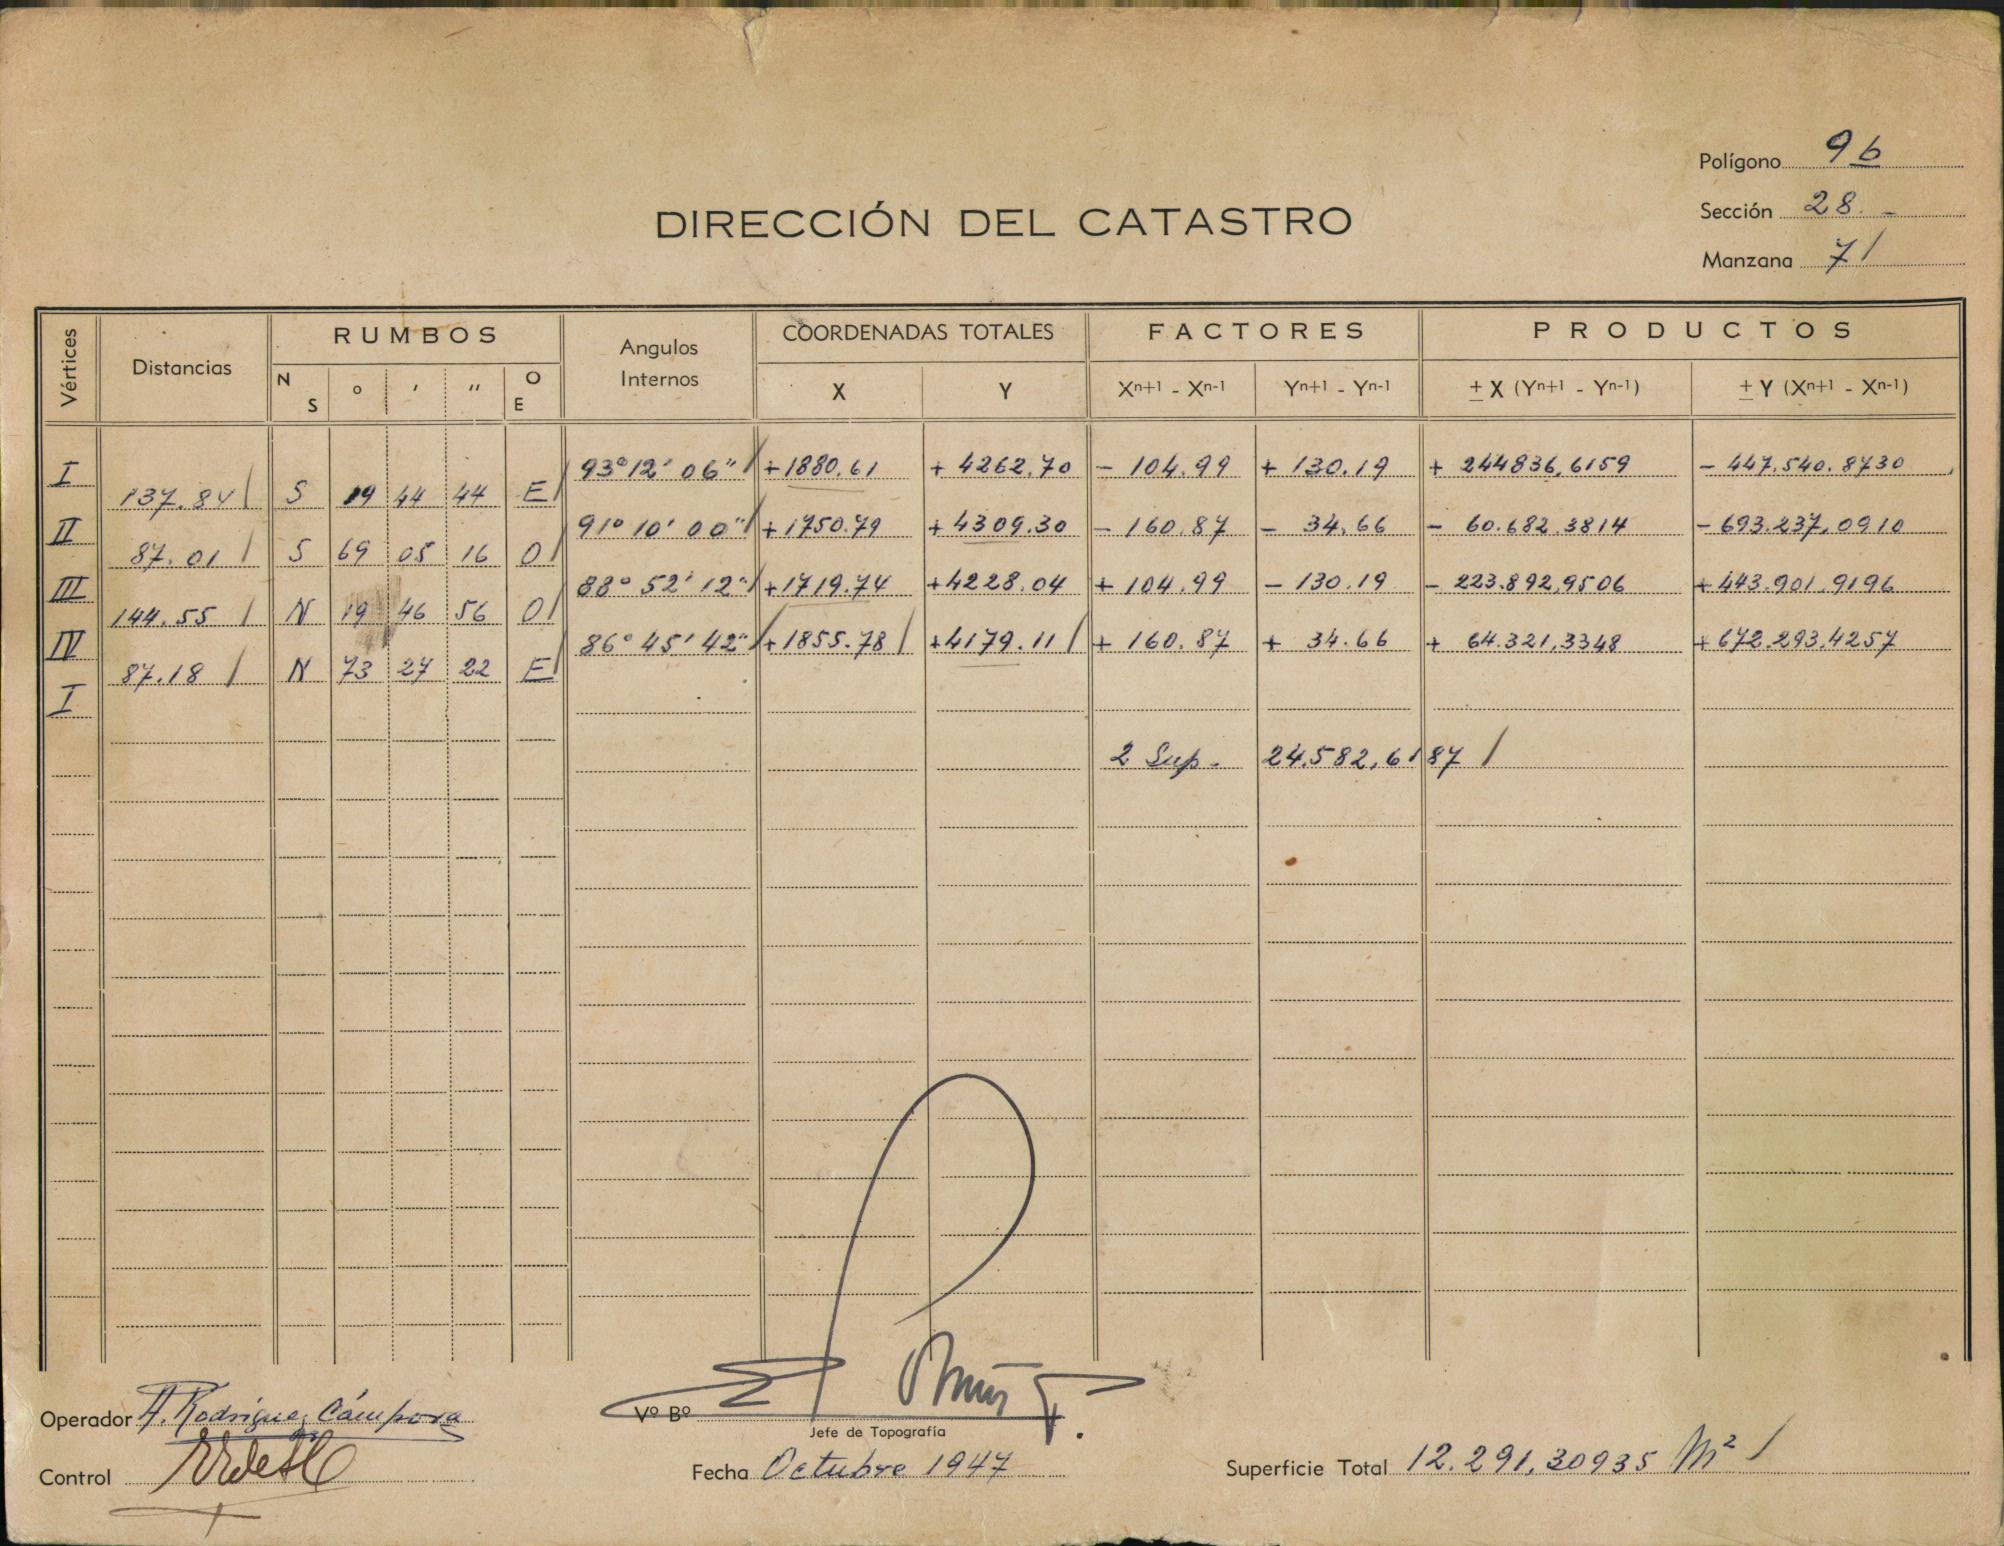 Polígono 9b
Sección 28.-
DIRECCIÓN DEL CATASTRO
Manzana 7/
Vértices Distancias RUMBOS Angulos Internos COORDENADAS TOTALES FACTORES PRODUCTOS
N S ° ' " O E X Y Xn+1 - Xn-1 Yn+1 - Yn-1 ± X (Yn+1 - Yn-1) ± Y (Xn+1 - Xn-1)
I 93° 12' 06" / +1880.61 +4262.70 -104.99 +130.19 +244836,6159 -447.540.8730
137.84 / S 19 44 44 E /
II 91° 10' 00" / +1750.79 +4309.30 -160.87 -34.66 -60.682.3814 -693.237,0910
87.01 / S 69 05 16 O /
III 88° 52' 12" / +1719.74 +4228.04 +104.99 -130.19 -223.892,9506 +443.901.9196
144.55 / N 19 46 56 O /
IV 86° 45' 42" / +1855.78 / +4179.11 / +160.87 +34.66 +64.321,3348 +672.293,4257
87.18 / N 73 27 22 E /
I
2 Sup. 24.582,6187 /
Operador A. Rodríguez Cámpora
Vº Bº
Jefe de Topografía
Control
Fecha Octubre 1947
Superficie Total 12.291,30935 M² /